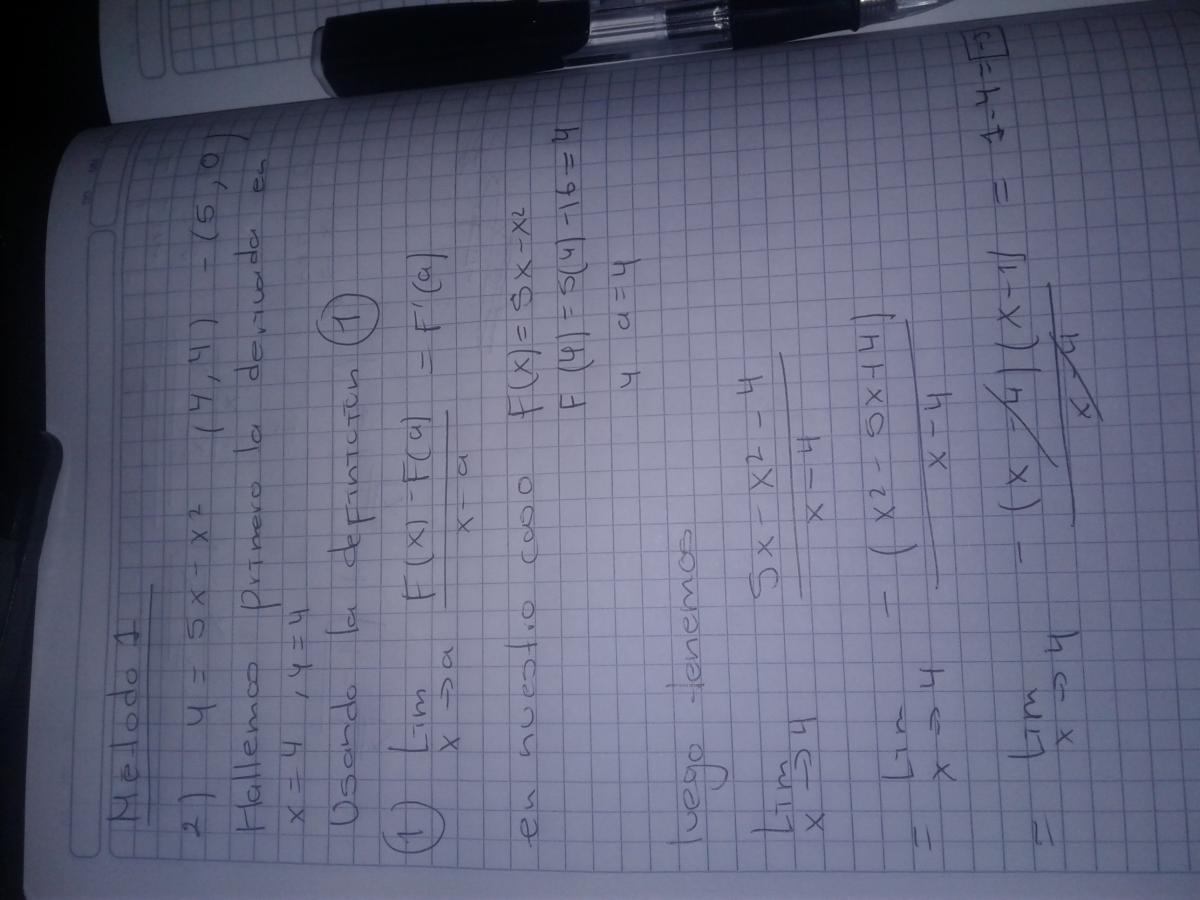 Método 1
2) y = 5x - x² (4,4) - (5,0)
Hallemos primero la derivada en
x = 4 , y = 4
Usando la definición ①
① Lim x→a F(x) - F(a) / x - a = F'(a)
en nuestro caso F(x) = 5x - x²
F(4) = 5(4) - 16 = 4
y a = 4
luego tenemos
Lim x→4 5x - x² - 4 / x - 4
= Lim x→4 - (x² - 5x + 4) / x - 4
= Lim x→4 - (x - 4)(x - 1) / x - 4 = 1 - 4 = -3